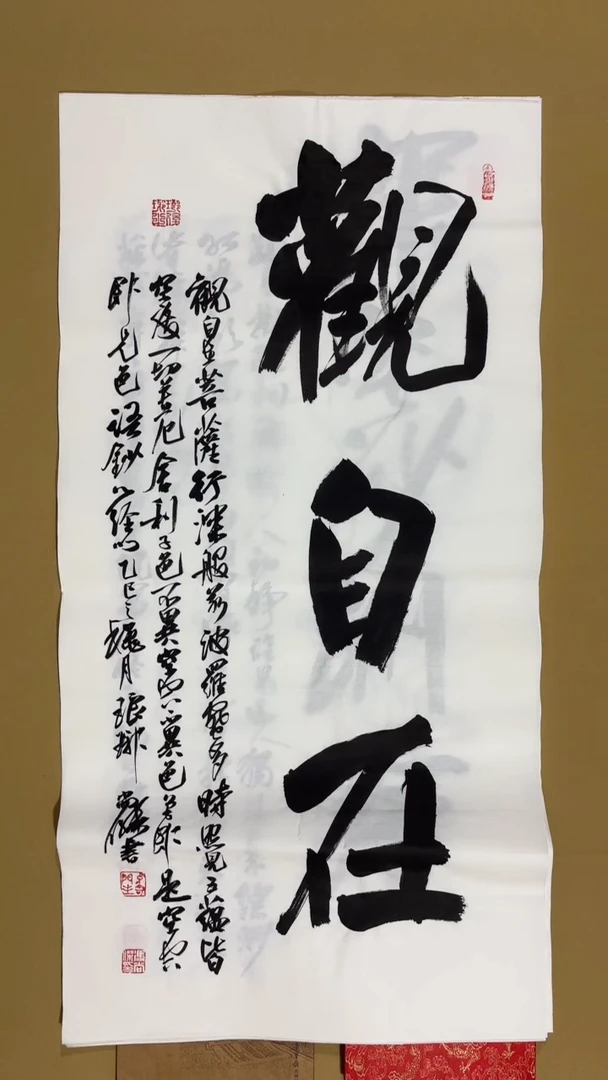 觀自在
觀自在菩薩行深般若波羅蜜多時照見五蘊皆
空度一切苦厄舍利子色不異空空不異色色即是空空
即是色 語鈔心経 乙巳之臘月 琅琊 書